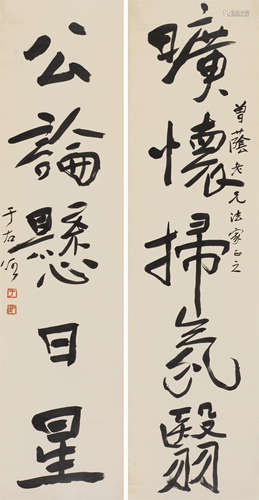 曠懷掃氛翳
曾蔭老兄法家正之
公論懸日星
于右任